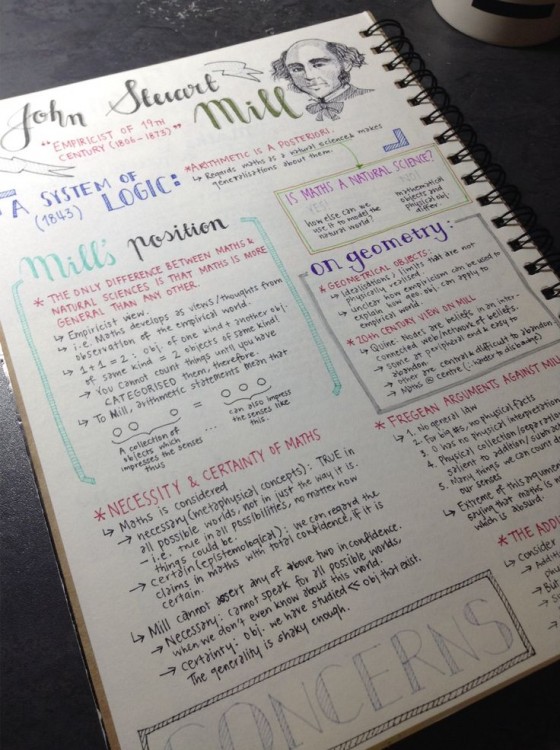 John Stewart Mill
"EMPIRICIST OF 19TH
CENTURY (1806-1873)"
A SYSTEM OF
(1843) LOGIC:
*ARITHMETIC IS A POSTERIORI.
↳ Regards maths as a natural science & makes
generalisations about them.
IS MATHS A NATURAL SCIENCE?
YES!
how else can we
use it to model the
natural world?
NO!
mathematical
objects and
physical obj.
differ.
Mill's position
* THE ONLY DIFFERENCE BETWEEN MATHS &
NATURAL SCIENCES IS THAT MATHS IS MORE
GENERAL THAN ANY OTHER.
↳ Empiricist view.
↳ i.e. Maths develops as views/thoughts from
observation of the empirical world.
↳ 1+1=2: obj. of one kind + another obj.
of same kind = 2 objects of same kind!
↳ You cannot count things until you have
CATEGORISED them, therefore.
↳ To Mill, arithmetic statements mean that
=
A collection of
objects which
impressed the senses
thus
...
can also impress
the senses like
this.
on geometry:
* GEOMETRICAL OBJECTS:
↳ Idealisations / limits that are not
physically realised.
↳ unclear how empiricism can be used to
explain how geo. obj. can apply to
empirical world.
* 20TH CENTURY VIEW ON MILL
↳ Quine: Nodes are beliefs in an inter-
connected web/network of beliefs.
→ some at peripheral end & easy to
abandon
→ other are central & difficult to abando
→ Maths @ centre (∴ harder to dislodge)
* NECESSITY & CERTAINTY OF MATHS
↳ Maths is considered
→ necessary (metaphysical concepts): TRUE in
all possible worlds, not in just the way it is.
- i.e. true in all possibilities, no matter how
things could be.
→ certain (epistemological): we can regard the
claims in maths with total confidence, if it is
certain.
↳ Mill cannot assert any of above two in confidence.
→ Necessary: cannot speak for all possible worlds,
when we don't even know about this world.
→ certainty: obj. we have studied << obj that exist.
The generality is shaky enough.
* FREGEAN ARGUMENTS AGAINST MIL
↳ 1. No general law
2. For big #s, no physical facts
3. 0 was no physical interpretation
4. Physical collection/separation
salient to addition/subtract
5. Many things we can count
our senses
↳ Extreme of this argument
saying that maths is no
which is absurd.
* THE ADDI
↳ Consider
→ Add
phy
→ Bu
→ S
CONCERNS